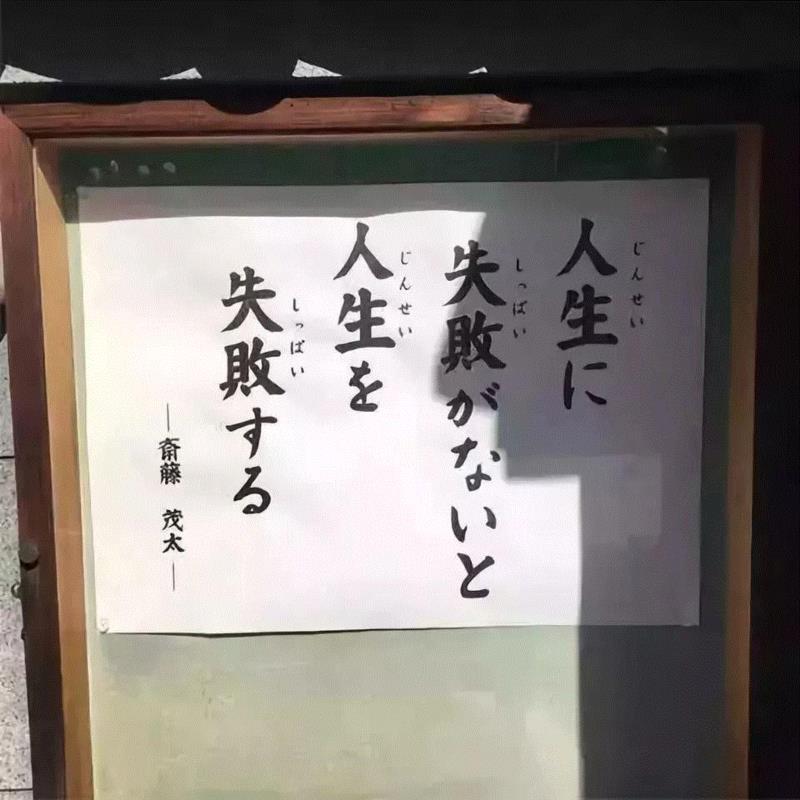 人生に
じんせい
失敗がないと
しっぱい
人生を
じんせい
失敗する
しっぱい
—斎藤 茂太—